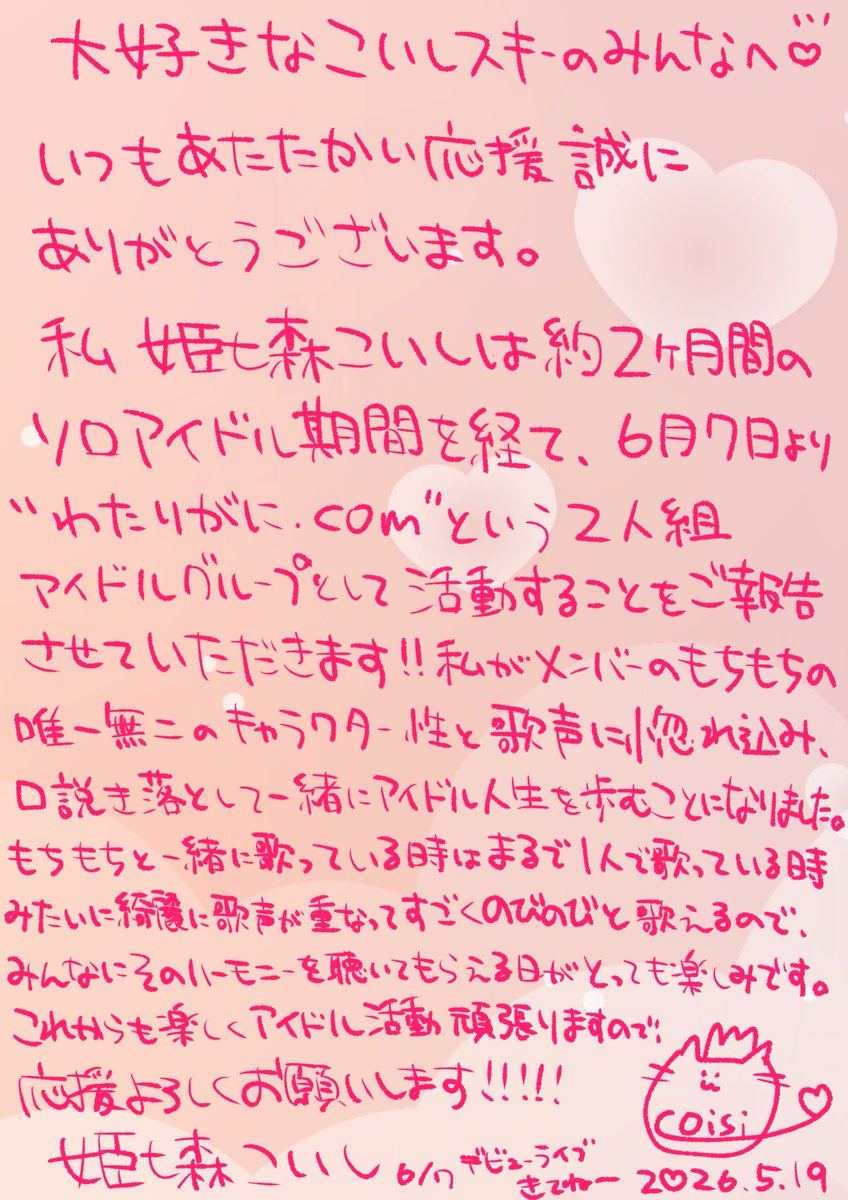 大好きなこいしスキーのみんなへ♡
いつもあたたかい応援誠に
ありがとうございます。
私 姫七森こいしは約2ヶ月間の
ソロアイドル期間を経て、6月7日より
"わたりがに.com"という2人組
アイドルグループとして活動することをご報告
させていただきます!!私がメンバーのもちもちの
唯一無二のキャラクター性と歌声に惚れ込み、
口説き落として一緒にアイドル人生を歩むことになりました。
もちもちと一緒に歌っている時はまるで1人で歌っている時
みたいに綺麗に歌声が重なってすごくのびのびと歌えるので、
みんなにそのハーモニーを聴いてもらえる日がとっても楽しみです。
これからも楽しくアイドル活動頑張りますので!
応援よろしくお願いします!!!!!
coisi
姫七森こいし 6/7 デビューライブ
きてねー 2♡26.5.19